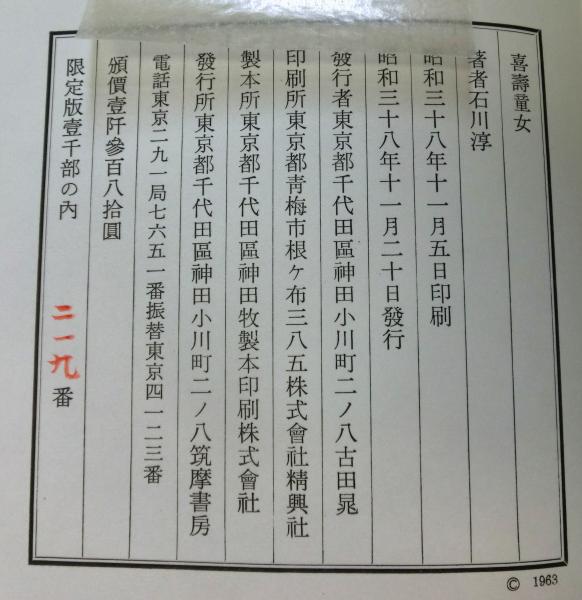 喜壽童女
著者石川淳
昭和三十八年十一月五日印刷
昭和三十八年十一月二十日發行
發行者東京都千代田區神田小川町二ノ八古田晁
印刷所東京都靑梅市根ケ布三八五株式會社精興社
製本所東京都千代田區神田牧製本印刷株式會社
發行所東京都千代田區神田小川町二ノ八筑摩書房
電話東京二九一局七六五一番振替東京四一二三番
頒價壹阡參百八拾圓
限定版壹千部の內 二一九番
© 1963